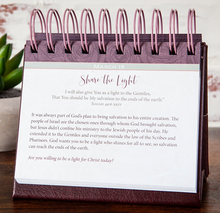 MARCH 18
Share the Light
I will also give You as a light to the Gentiles,
That You should be My salvation to the ends of the earth."
ISAIAH 49:6
It was always part of God's plan to bring salvation to his entire creation. The
people of Israel are the chosen ones through whom God brought salvation,
but Jesus didn't confine his ministry to the Jewish people of his day. He
extended it to the Gentiles and everyone outside the law of the Scribes and
Pharisees. God wants you to be a light who shines for all to see, so salvation
can reach the ends of the earth.
Are you willing to be a light for Christ today?